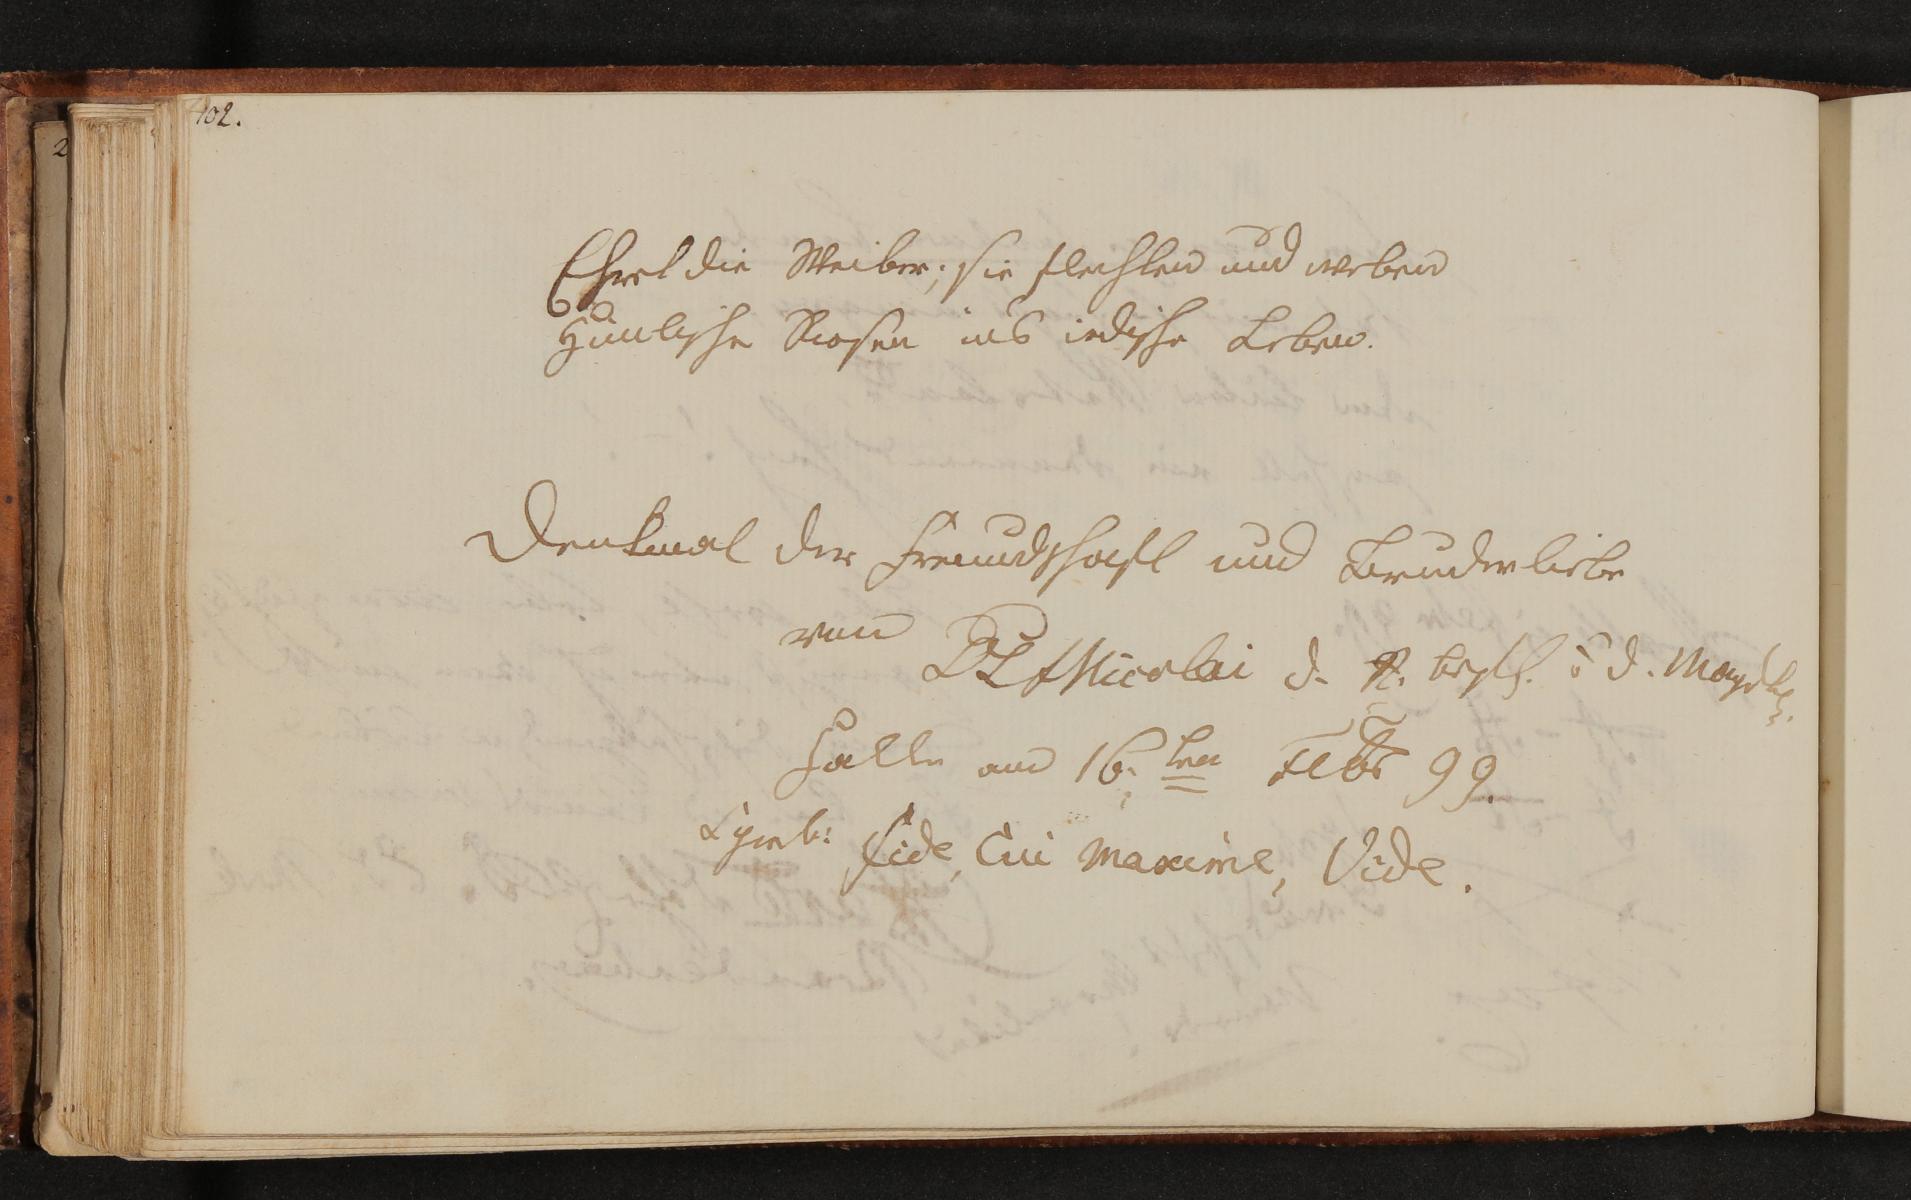 102.
2
Ehret die Weiber; sie flechten und weben
Himlische Rosen ins irdische Leben.
Denkmal der Freundschaft und Bruderliebe
von Nicolai d. R. befl. a. d. Magdeb.
Halle am 16. ten Febr 99.
Symb: Fide, Cui maxime, Vide.